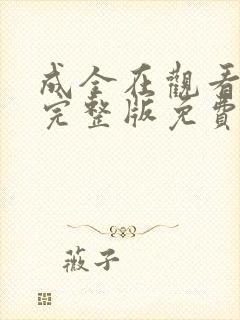 成全在觀看
完整版免費
薇子